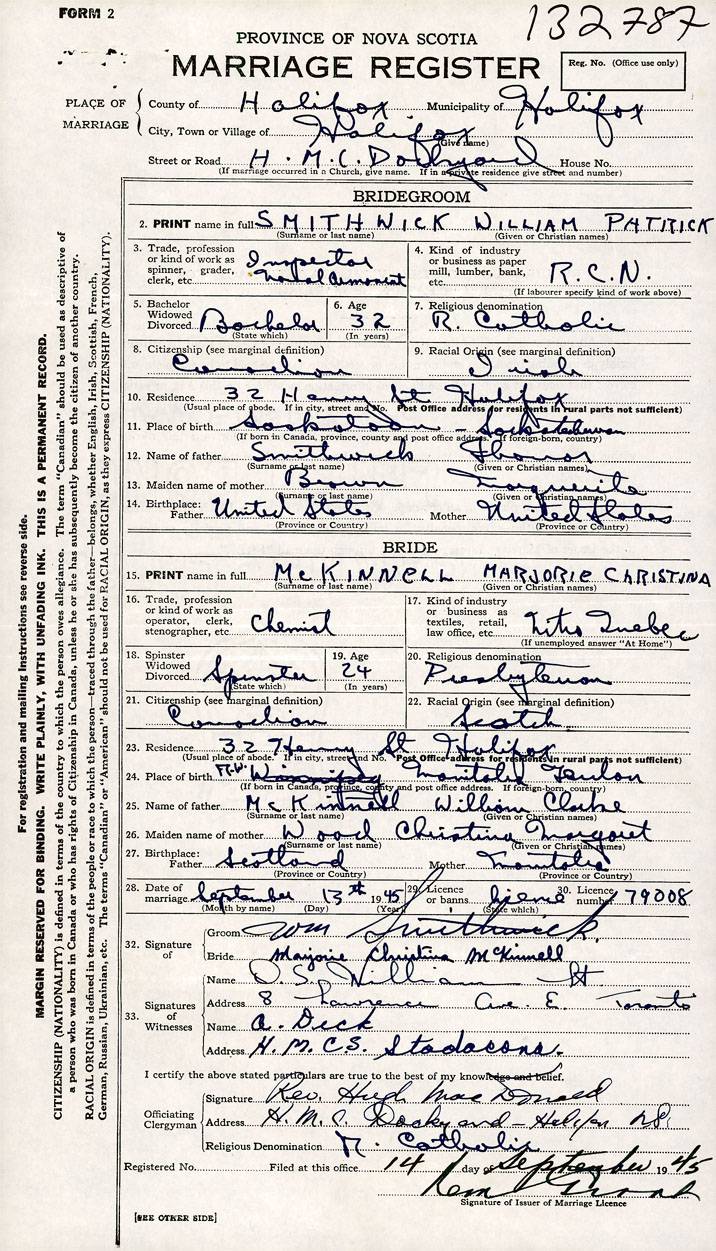 FORM 2
132787
PROVINCE OF NOVA SCOTIA
MARRIAGE REGISTER
Reg. No. (Office use only)
PLACE OF MARRIAGE
County of Halifax Municipality of Halifax
City, Town or Village of Halifax
(Give name)
Street or Road H.M.C. Dockyard House No.
(If marriage occurred in a Church, give name. If in a private residence give street and number)
BRIDEGROOM
2. PRINT name in full SMITHWICK WILLIAM PATRICK
(Surname or last name) (Given or Christian names)
3. Trade, profession or kind of work as spinner, grader, clerk, etc. Inspector Naval Armament
4. Kind of industry or business as paper mill, lumber, bank, etc. R.C.N.
(If labourer specify kind of work above)
5. Bachelor Widowed Divorced Bachelor
(State which)
6. Age 32
(In years)
7. Religious denomination R. Catholic
8. Citizenship (see marginal definition) Canadian
9. Racial Origin (see marginal definition) Irish
10. Residence 32 Henry St Halifax
(Usual place of abode. If in city, street and No. Post Office address for residents in rural parts not sufficient)
11. Place of birth Saskatoon - Saskatchewan
(If born in Canada, province, county and post office address. If foreign-born, country)
12. Name of father Smithwick Thomas
(Surname or last name) (Given or Christian names)
13. Maiden name of mother Brown Marguerite
(Surname or last name) (Given or Christian names)
14. Birthplace: Father United States Mother United States
(Province or Country) (Province or Country)
BRIDE
15. PRINT name in full McKINNELL MARJORIE CHRISTINA
(Surname or last name) (Given or Christian names)
16. Trade, profession or kind of work as operator, clerk, stenographer, etc. Chemist
17. Kind of industry or business as textiles, retail, law office, etc. Quebec
(If unemployed answer "At Home")
18. Spinster Widowed Divorced Spinster
(State which)
19. Age 24
(In years)
20. Religious denomination Presbyterian
21. Citizenship (see marginal definition) Canadian
22. Racial Origin (see marginal definition) Scotch
23. Residence 32 Henry St Halifax
(Usual place of abode. If in city, street and No. Post Office address for residents in rural parts not sufficient)
24. Place of birth Winnipeg Manitoba
(If born in Canada, province, county and post office address. If foreign-born, country)
25. Name of father McKinnell William Clarke
(Surname or last name) (Given or Christian names)
26. Maiden name of mother Wood Christina Margaret
(Surname or last name) (Given or Christian names)
27. Birthplace: Father Scotland Mother Manitoba
(Province or Country) (Province or Country)
28. Date of marriage September 13th 1945
(Month by name) (Day) (Year)
29. Licence or banns license
(State which)
30. Licence number 79008
32. Signature of
Groom Wm Smithwick
Bride Marjorie Christina McKinnell
33. Signatures of Witnesses
Name William
Address 8 Lawrence Ave. E. Toronto
Name A. Deck
Address H.M.C.S. Stadacona.
I certify the above stated particulars are true to the best of my knowledge and belief.
Officiating Clergyman
Signature Rev. Hugh MacDonald
Address H.M.C Dockyard - Halifax N.S.
Religious Denomination R. Catholic
Registered No. Filed at this office 14 day of September 1945
Signature of Issuer of Marriage Licence
[SEE OTHER SIDE]
For registration and mailing instructions see reverse side.
MARGIN RESERVED FOR BINDING. WRITE PLAINLY, WITH UNFADING INK. THIS IS A PERMANENT RECORD.
CITIZENSHIP (NATIONALITY) is defined in terms of the country to which the person owes allegiance. The term "Canadian" should be used as descriptive of
a person who was born in Canada or who has rights of Citizenship in Canada, unless he or she has subsequently become the citizen of another country.
RACIAL ORIGIN is defined in terms of the people or race to which the person—traced through the father—belongs, whether English, Irish, Scottish, French,
German, Russian, Ukrainian, etc. The terms "Canadian" or "American" should not be used for RACIAL ORIGIN, as they express CITIZENSHIP (NATIONALITY).